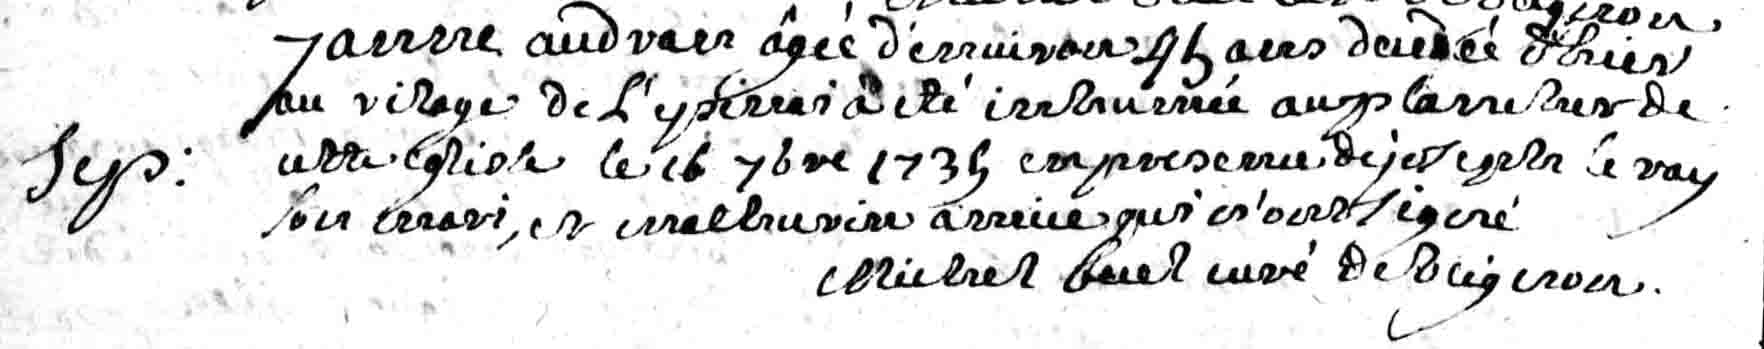 Janne audrain âgée d'environ 45 ans decedée d'hier
au vilage de L'epinai a été inhumée au cimetiere de
Sep: cette Eglise le 16 7bre 1735 en presence de joseph le ray
son mari, et mathurin qui n'ont signé
Michel curé de